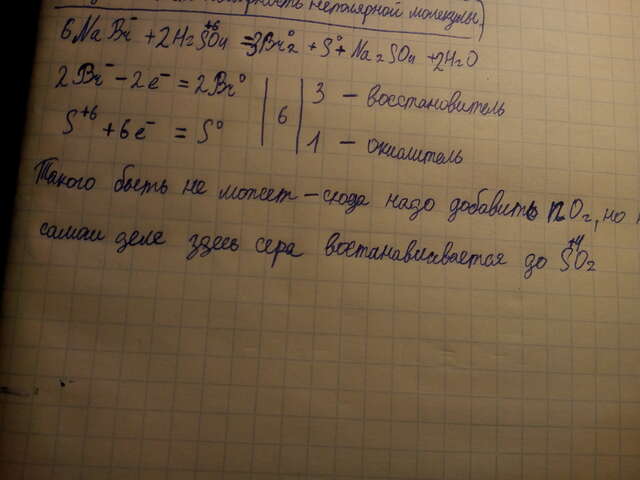 полярность неполярной молекулы)
6NaBr⁻ + 2H₂S⁺⁶O₄ = 3Br₂⁰ + S⁰ + Na₂SO₄ + 2H₂O
2Br⁻ – 2e⁻ = 2Br⁰ | 6 | 3 – восстановитель
S⁺⁶ + 6e⁻ = S⁰ | 1 – окислитель
Такого быть не может – сюда надо добавить nO₂, но
самом деле здесь сера востанавливается до S⁺⁴O₂